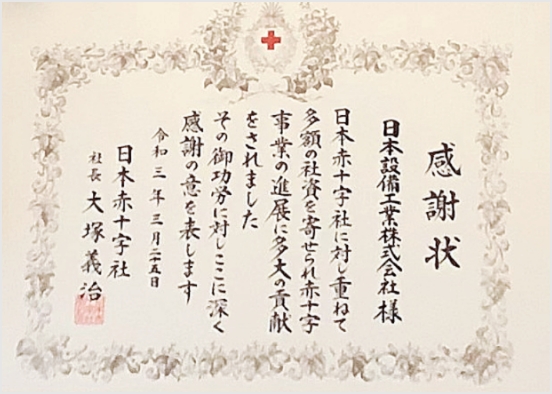 感謝状
日本設備工業株式会社様
日本赤十字社に対し重ねて
多額の社資を寄せられ赤十字
事業の進展に多大の貢献
をされました
その御功労に対しここに深く
感謝の意を表します
令和三年三月二十五日
日本赤十字社
社長 大塚義治